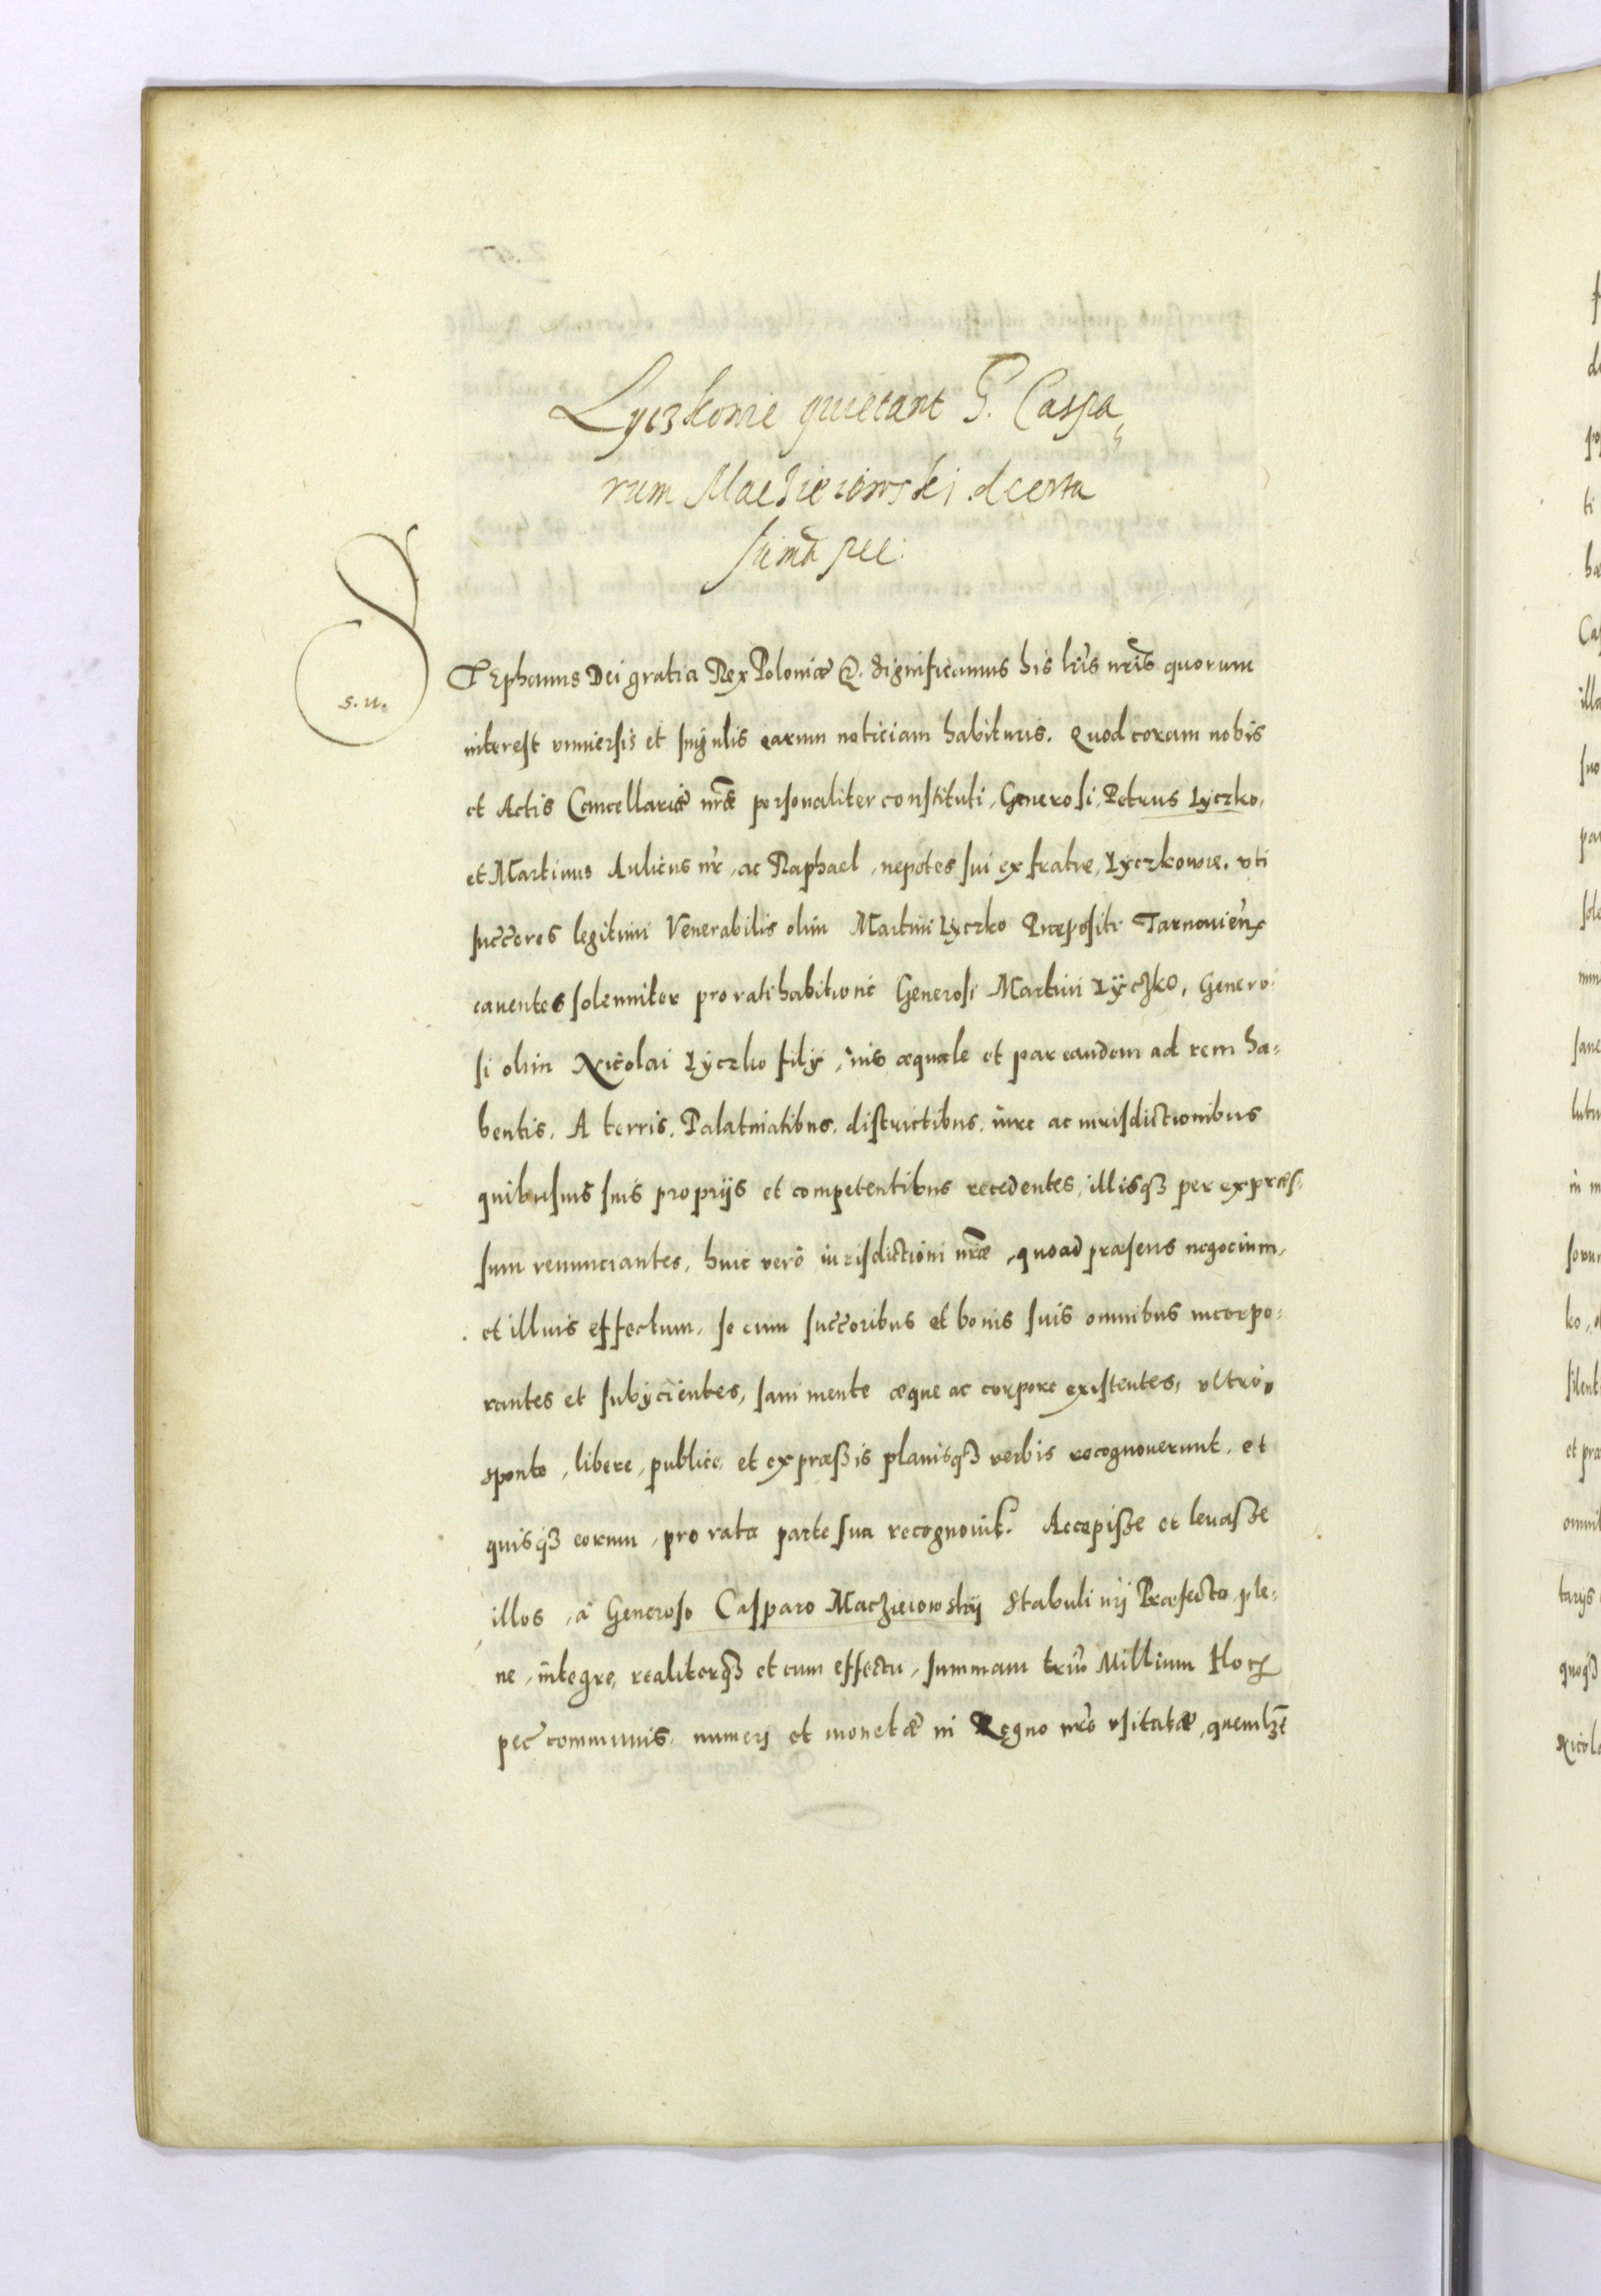 Lyczkowie quietant G. Caspa„
rum Maciieiowski de certa
sum̃a pec:
S
s. n.
TEphanus Dei gratia Rex Poloniæ &. Significamus his lr̃is nr̃is quorum
interest vniuersis et singulis earum noticiam habituris. Quod coram nobis
et Actis Cancellariæ nr̃æ personaliter constituti, Generosi, Petrus Lyczko,
et Martinus Aulicus nr̃, ac Raphael, nepotes sui ex fratre, Lyczkowie. vti
succ̃ores legitimi Venerabilis olim Martini Lyczko Præpositi Tarnovieñ
cauentes solenniter pro ratihabitione Generosi Martini Lyczko, Genero:
si olim Nicolai Lyczko filij, ius æquale et par eandem ad rem ha=
bentis. A terris, Palatinatibus, districtibus, iure ac iurisdictionibus
quibusuis suis proprijs et competentibus recedentes, illisqȝ per expræs:
sum renunciantes, huic verò iurisdictioni nr̃æ, quoad præsens negocium,
et illius effectum, se cum succ̃oribus et bonis suis omnibus incorpo:
rantes et subijcientes, sani mente æque ac corpore existentes, vltrò,
sponte, libere, publice, et expræßis planisqȝ verbis recognouerunt, et
quisqȝ eorum, pro rata parte sua recognouit. Accepiße et leuaße
illos, à Generoso Casparo Maczieiowskij Stabuli nr̃j Præfecto, ple:
ne, integre, realiterqȝ et cum effectu, summam triũ Millium floꝝ
pec̃ communis, numerj et monetæ in Regno nr̃o vsitatæ, quemlȝt